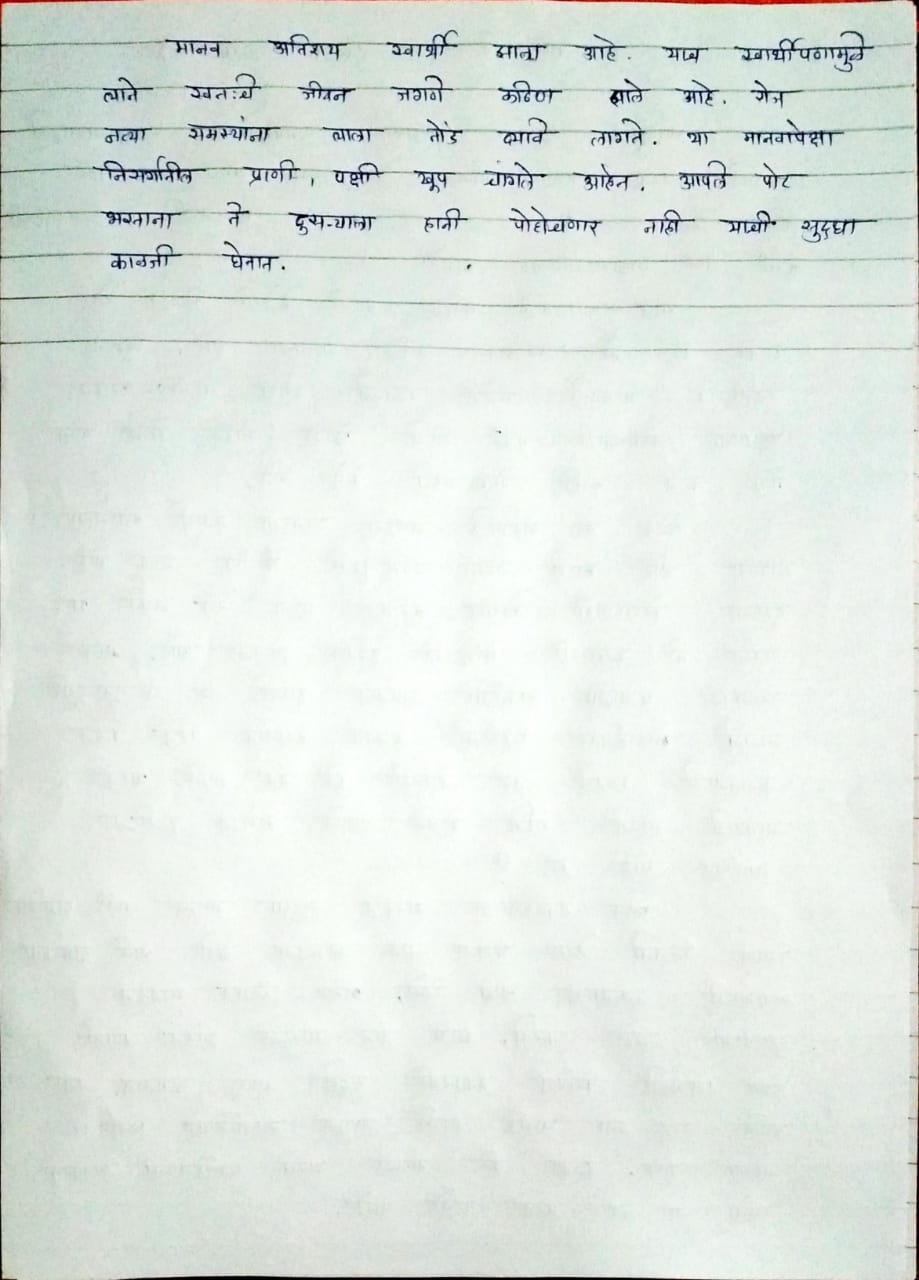 मानव अतिशय स्वार्थी झाला आहे. याच स्वार्थीपणामुळे
त्याने स्वतःचे जीवन जगणे कठिण झाले आहे. रोज
नव्या समस्यांना त्याला तोंड द्यावे लागते. या मानवापेक्षा
निसर्गातील प्राणी, पक्षी खूप चांगले आहेत. आपले पोट
भरताना ते दुसऱ्याला हानी पोहोचणार नाही याची सुद्धा
काळजी घेतात.